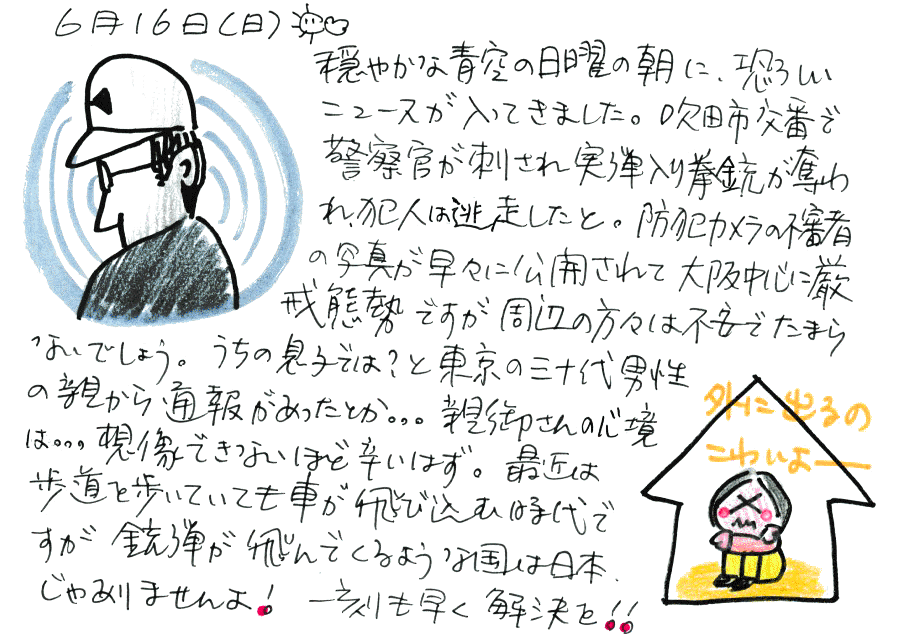 6月16日(日)
穏やかな青空の日曜の朝に、恐ろしい
ニュースが入ってきました。吹田市交番で
警察官が刺され実弾入り拳銃が奪わ
れ、犯人は逃走したと。防犯カメラの不審者
の写真が早々に公開されて大阪中心に厳
戒態勢ですが周辺の方々は不安でたまら
ないでしょう。うちの息子では?と東京の三十代男性
の親から通報があったとか。。。親御さんの心境
は。。。想像できないほど辛いはず。最近は
歩道を歩いていても車が飛び込む時代で
すが銃弾が飛んでくるような国は日本
じゃありませんよ! 一刻も早く解決を!!
外に出るの
こわいよー